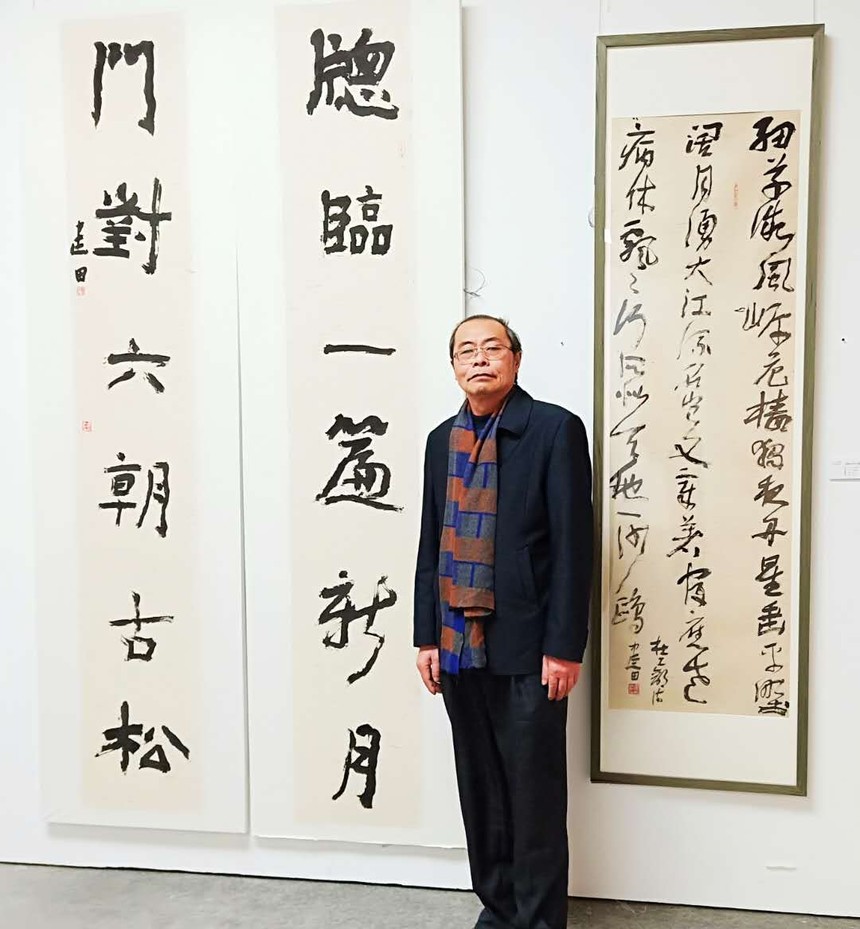 細草微風岸危檣獨夜舟星垂平埜
闊月湧大江流名豈文章著官應老
病休飄〻何所似天地一沙鷗
杜工部诗
建田
牕臨一篇新月
門對六朝古松
建田